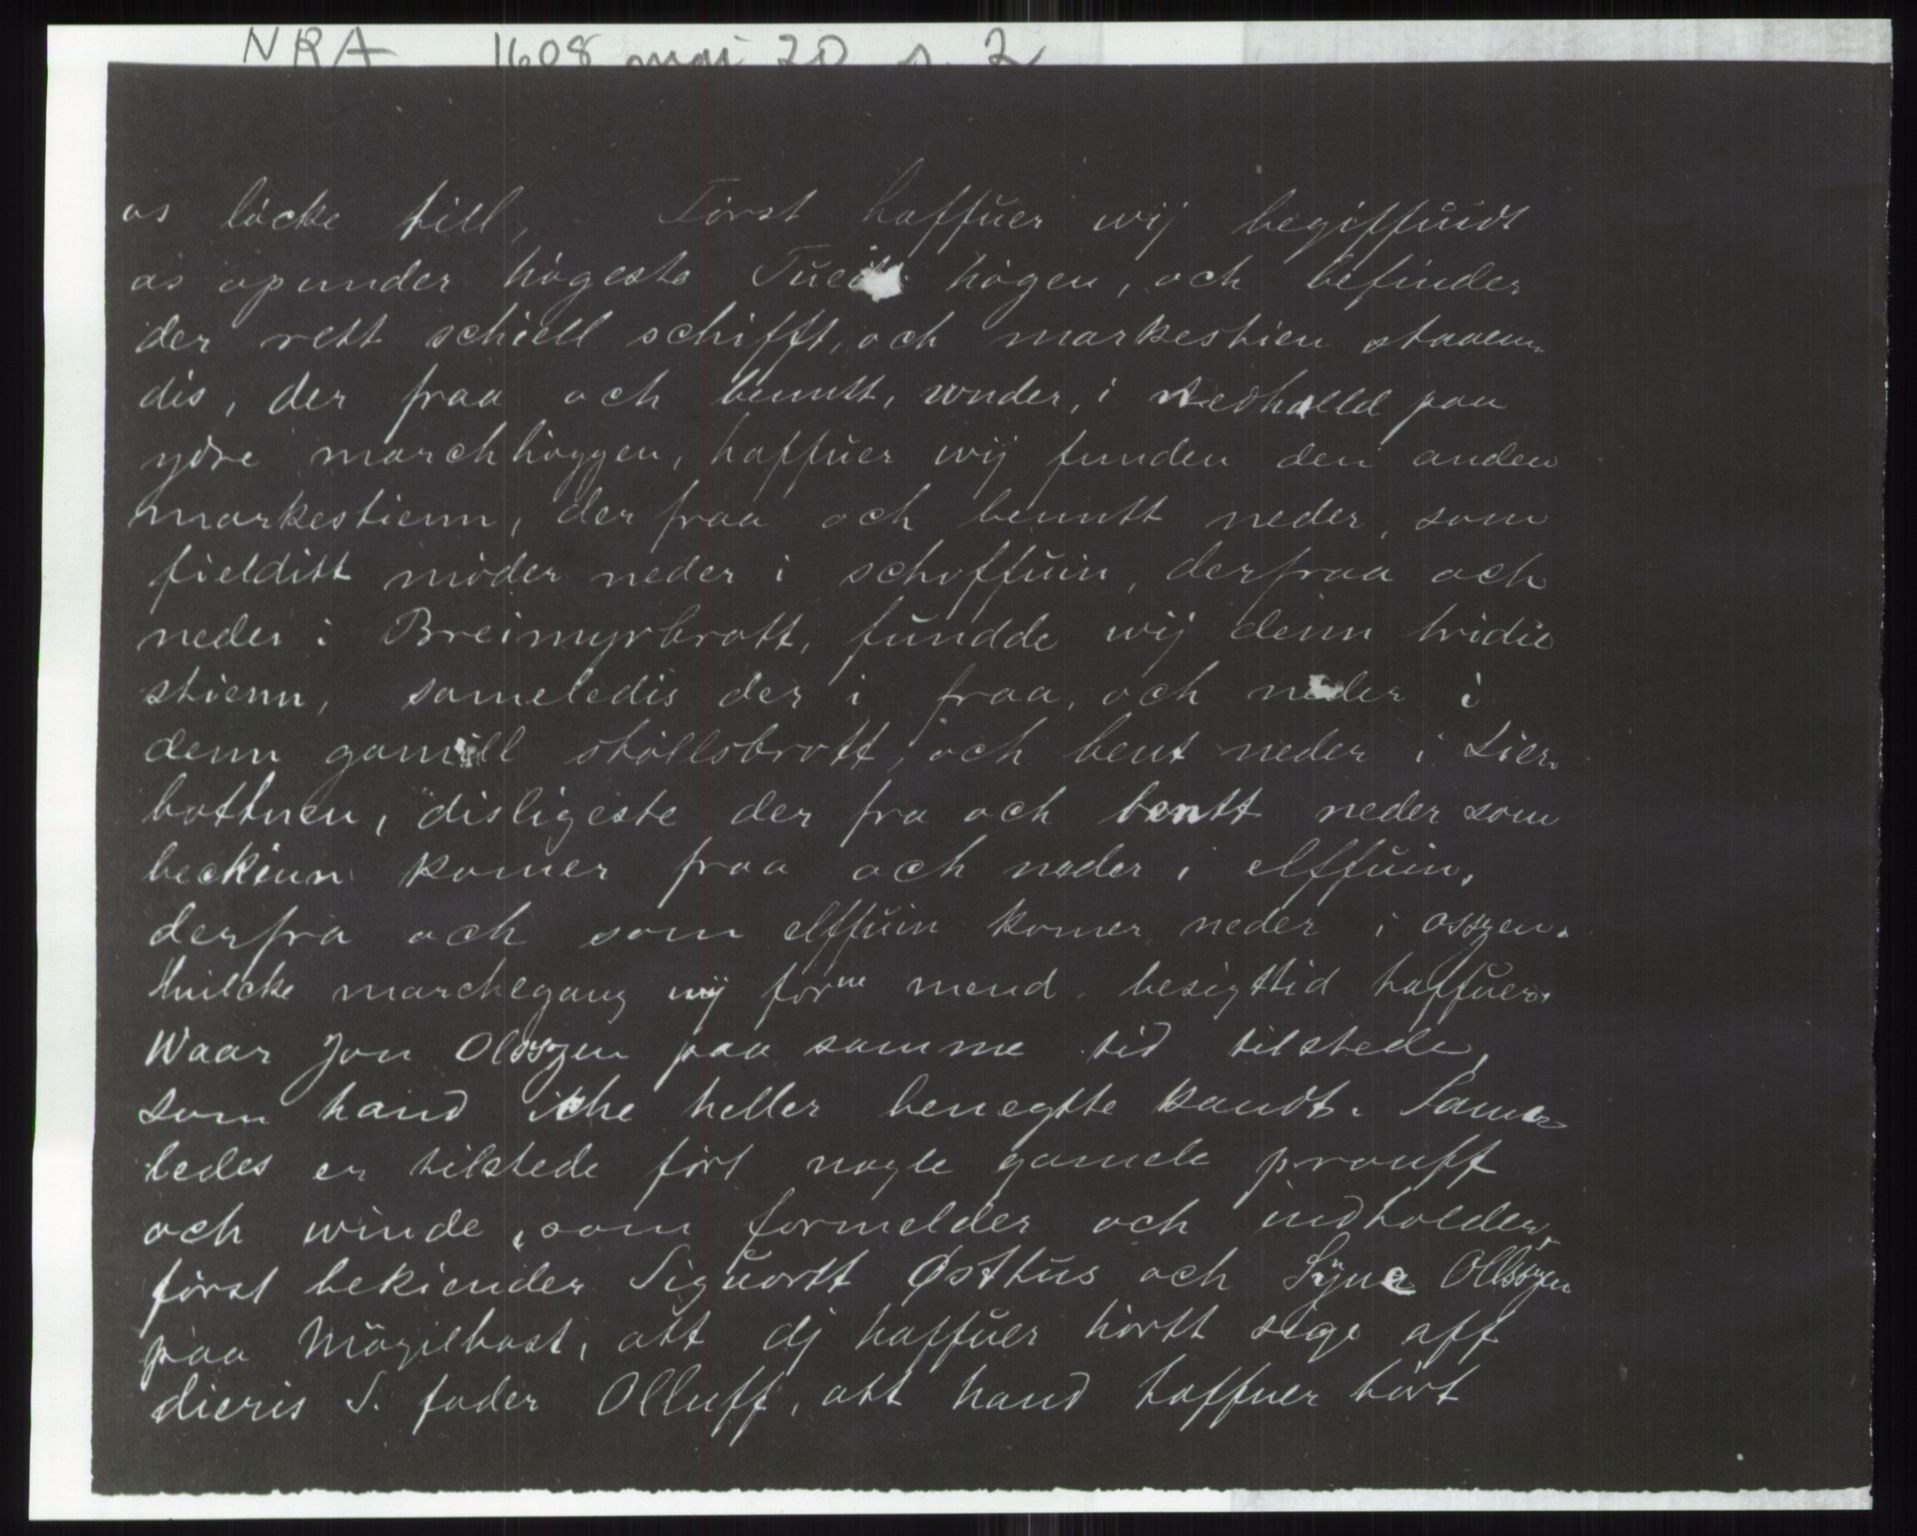 NRA 1608 mai 20 s. 2
os löcke till, Först haffuer wij begiffuidt
os openunder högeste högen, och befinder
der rett schiell schifft, och markestien staaen-
dis, der fraa och benntt, wnder, i paa
ydre marchhöggen, haffuer wij funden den anden
markestienn, der fraa och benntt neder, som
fielditt möder neder i schoffuin, derfraa och
neder i Breimyrbrott, fundde wij denn tridie
stienn, sameledis der i fraa, och neder i
denn gamill stöllsbrott, och bent neder i Lier-
bottnen, disligeste der fra och bentt neder som
beckinn komer fraa och neder i elffuin,
derfra och som elffuin komer neder i osszen.
Huilcke marchegang wij forne mend besigttid haffuer.
Waar Jon Olsszen paa samme tid tilstede,
som hand icke heller benegtte kandt. Same-
ledes er tilstede fört nogle gamele prouff
och winde, som formelder och indholder,
först bekiender Siguortt Østhus och Syne Ollsszen
paa Mögilbost, att dj haffuer hörtt sige aff
dieris S. fader Olluff, att hand haffuer hört